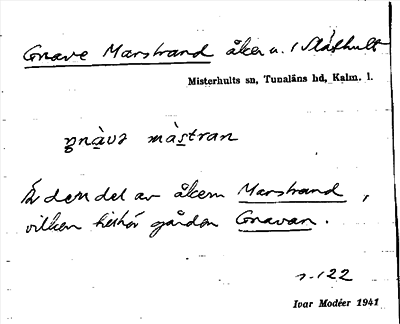 Gnave Marstrand åker u. 1 Slåthult
Misterhults sn, Tunaläns hd, Kalm. l.
gnàvə màstran
Är den del av åkern Marstrand,
vilken tillhör gården Gnavan.
s. 122
Ivar Modéer 1941